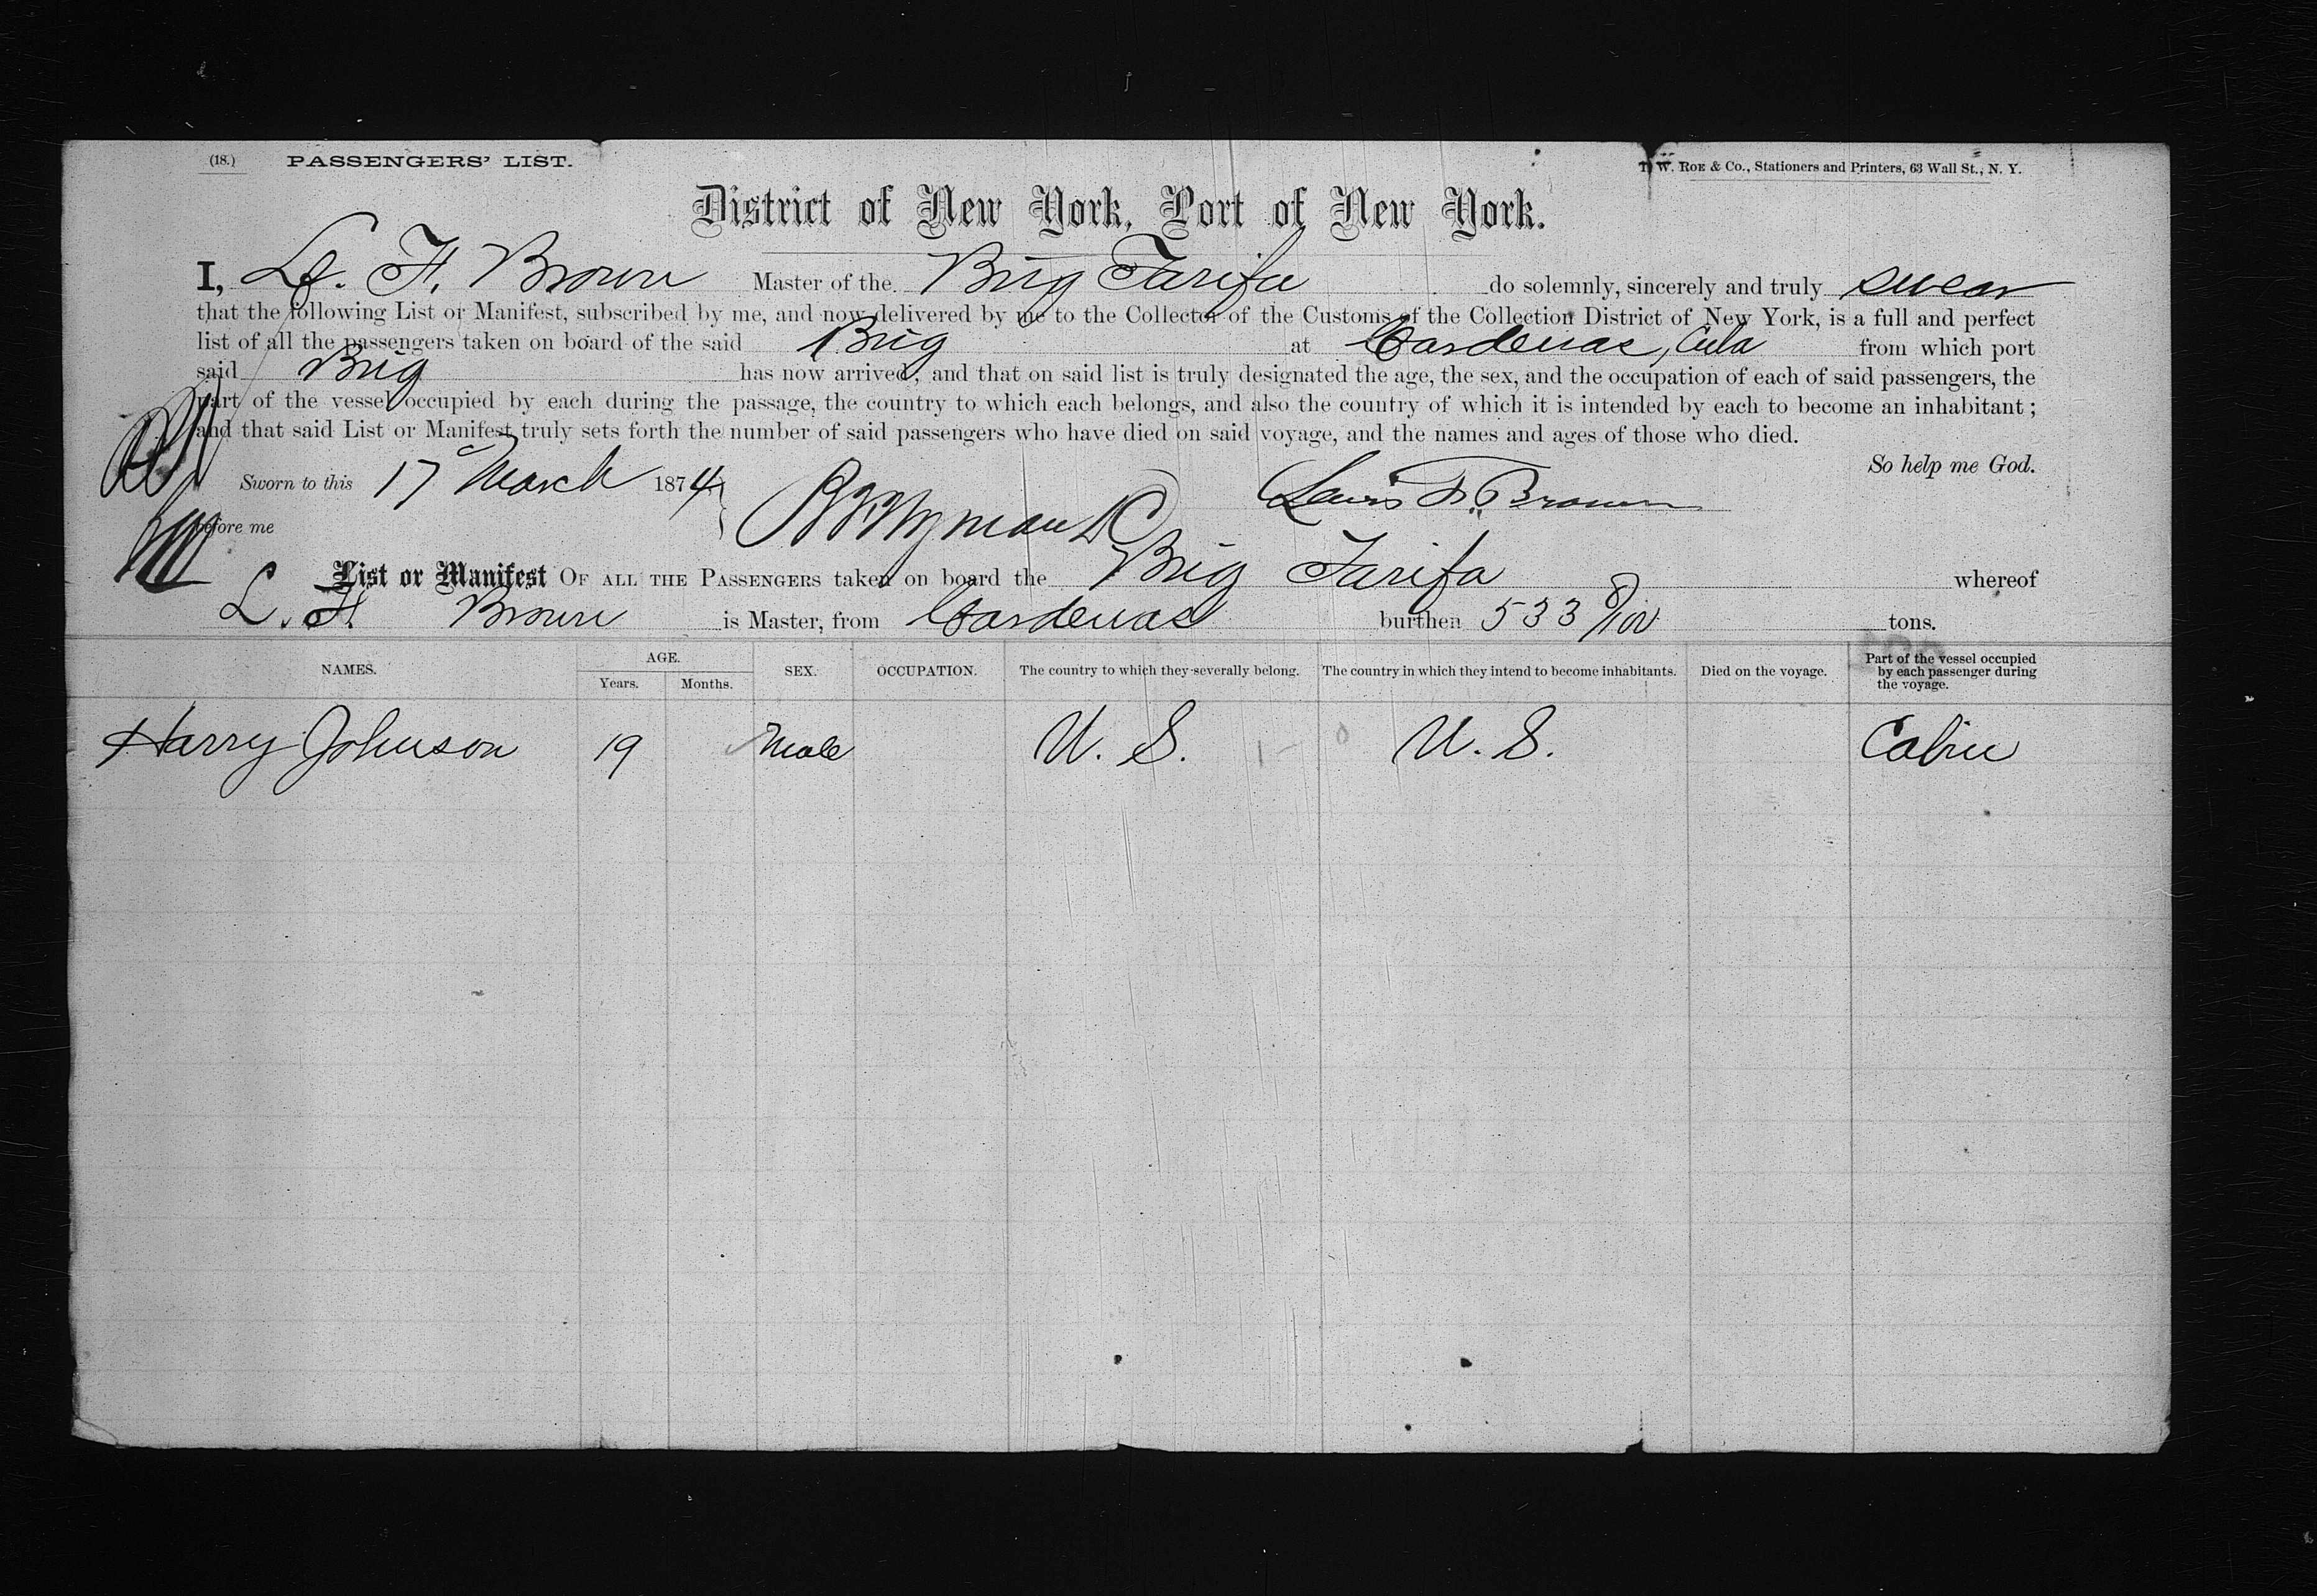 (18.) PASSENGERS' LIST. T. W. ROE & Co., Stationers and Printers, 63 Wall St., N. Y.
District of New York, Port of New York.
I, L. F. Brown Master of the Brig Tarifa do solemnly, sincerely and truly swear
that the following List or Manifest, subscribed by me, and now delivered by me to the Collector of the Customs of the Collection District of New York, is a full and perfect
list of all the passengers taken on board of the said Brig at Cardenas, Cuba from which port
said Brig has now arrived, and that on said list is truly designated the age, the sex, and the occupation of each of said passengers, the
part of the vessel occupied by each during the passage, the country to which each belongs, and also the country of which it is intended by each to become an inhabitant;
and that said List or Manifest truly sets forth the number of said passengers who have died on said voyage, and the names and ages of those who died.
So help me God.
Sworn to this 17 March 1874 Lewis F. Brown
before me
List or Manifest OF ALL THE PASSENGERS taken on board the Brig Tarifa whereof
L. F. Brown is Master, from Cardenas burthen 533 8/100 tons.
NAMES. AGE. Years. Months. SEX. OCCUPATION. The country to which they severally belong. The country in which they intend to become inhabitants. Died on the voyage. Part of the vessel occupied by each passenger during the voyage.
Harry Johnson 19 Male U. S. U. S. Cabin